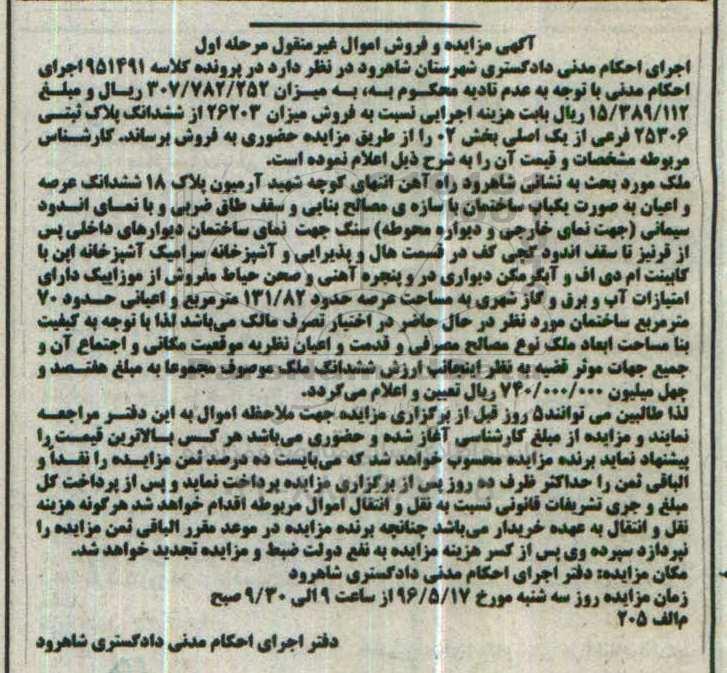 آگهی مزایده و فروش اموال غیرمنقول مرحله اول
اجرای احکام مدنی دادگستری شهرستان شاهرود در نظر دارد در پرونده کلاسه ۹۵۱۴۹۱ اجرای
احکام مدنی با توجه به عدم تادیه محکوم به، به میزان ۳۰۷/۷۸۲/۲۵۲ ریال و مبلغ
۱۵/۳۸۹/۱۱۲ ریال بابت هزینه اجرایی نسبت به فروش میزان ۲۶۲۰۳ از ششدانک پلاک ثبتی
۲۵۳۰۶ فرعی از یک اصلی بخش ۰۲ را از طریق مزایده حضوری به فروش برساند. کارشناس
مربوطه مشخصات و قیمت آن را به شرح ذیل اعلام نموده است.
ملک مورد بحث به نشانی شاهرود راه آهن انتهای کوچه شهید آرمیون پلاک ۱۸ ششدانک عرصه
و اعیان به صورت یکباب ساختمان با سازه ی مصالح بنایی و سقف طاق ضربی و با نمای اندود
سیمانی (جهت نمای خارجی و دیواره محوطه) سنگ جهت نمای ساختمان دیوارهای داخلی پس
از قرنیز تا سقف اندود گچی کف در قسمت هال و پذیرایی و آشپزخانه سرامیک آشپزخانه اپن با
کابینت ام دی اف و آبگرمکن دیواری در و پنجره آهنی و صحن حیاط مفروش از موزاییک دارای
امتیازات آب و برق و گاز شهری به مساحت عرصه حدود ۱۳۱/۸۲ مترمربع و اعیانی حدود ۷۰
مترمربع ساختمان مورد نظر در حال حاضر در اختیار تصرف مالک می‌باشد لذا با توجه به کیفیت
بنا مساحت ابعاد ملک نوع مصالح مصرفی و قدمت و اعیان نظریه موقعیت مکانی و اجتماع آن و
جمیع جهات موثر قضیه به نظر اینجانب ارزش ششدانک ملک موصوف مجموعا به مبلغ هفتصد و
چهل میلیون ۷۴۰/۰۰۰/۰۰۰ ریال تعیین و اعلام می‌گردد.
لذا طالبین می توانند۵ روز قبل از برگزاری مزایده جهت ملاحظه اموال به این دفتر مراجعه
نمایند و مزایده از مبلغ کارشناسی آغاز شده و حضوری می‌باشد هر کس بالاترین قیمت را
پیشنهاد نماید برنده مزایده محسوب خواهد شد که می‌بایست ده درصد ثمن مزایده را نقدا و
الباقی ثمن را حداکثر ظرف ده روز پس از برگزاری مزایده پرداخت نماید و پس از پرداخت کل
مبلغ و جری تشریفات قانونی نسبت به نقل و انتقال اموال مربوطه اقدام خواهد شد هرگونه هزینه
نقل و انتقال به عهده خریدار می‌باشد چنانچه برنده مزایده در موعد مقرر الباقی ثمن مزایده را
نپردازد سپرده وی پس از کسر هزینه مزایده به نفع دولت ضبط و مزایده تجدید خواهد شد.
مکان مزایده: دفتر اجرای احکام مدنی دادگستری شاهرود
زمان مزایده روز سه شنبه مورخ ۹۶/۵/۱۷ از ساعت ۹ الی ۹/۳۰ صبح
م‌الف ۲۰۵
دفتر اجرای احکام مدنی دادگستری شاهرود